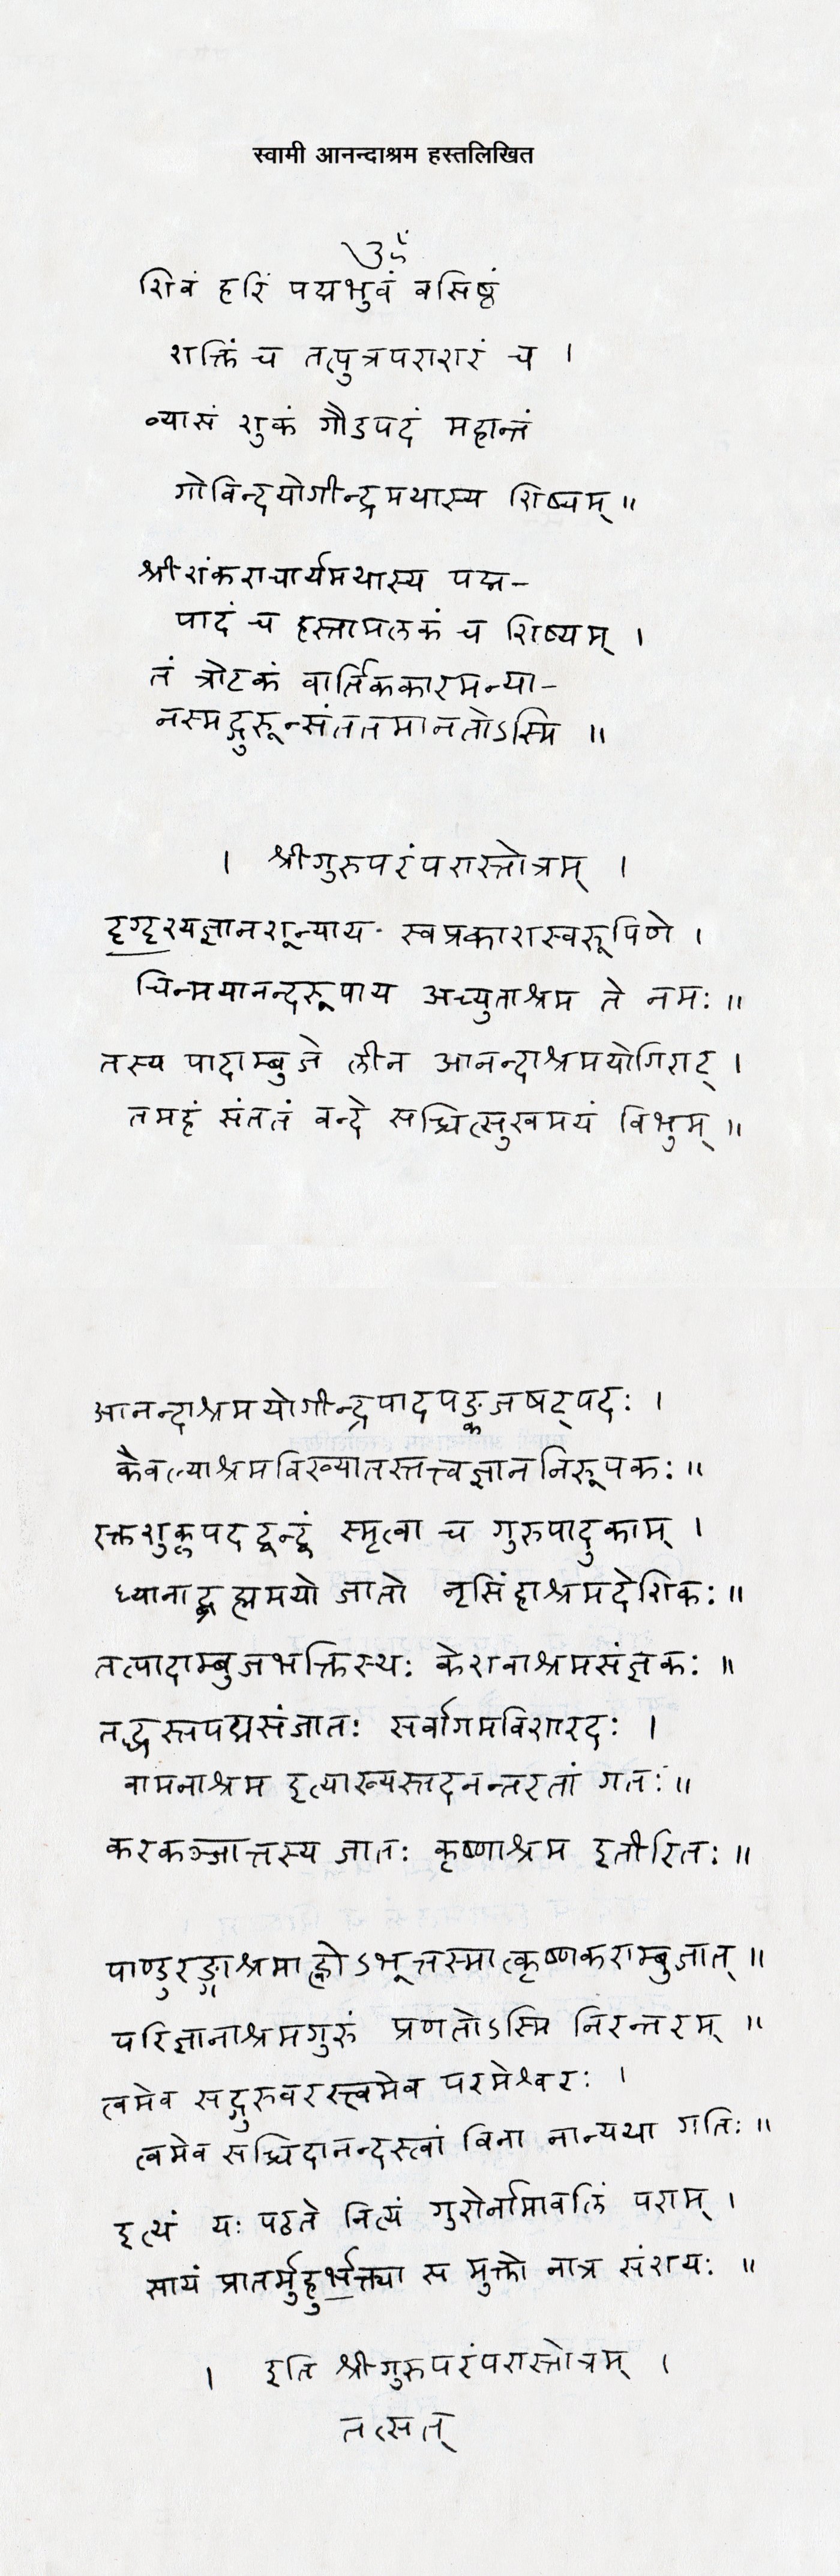 स्वामी आनन्दाश्रम हस्तलिखित
ॐ
शिवं हरिं पद्मभुवं वसिष्ठं
शक्तिं च तत्पुत्रपराशरं च ।
व्यासं शुकं गौडपदं महान्तं
गोविन्दयोगीन्द्रमथास्य शिष्यम् ॥
श्रीशंकराचार्यमथास्य पद्म-
पादं च हस्तामलकं च शिष्यम् ।
तं त्रोटकं वार्तिककारमन्या-
नस्मद्गुरून्संततमानतोऽस्मि ॥
। श्रीगुरुपरंपरास्तोत्रम् ।
दृग्दृश्यज्ञानशून्याय स्वप्रकाशस्वरूपिणे ।
चिन्मयानन्दरूपाय अच्युताश्रम ते नमः ॥
तस्य पादाम्बुजे लीन आनन्दाश्रमयोगिराट् ।
तमहं संततं वन्दे सच्चित्सुखमयं विभुम् ॥
आनन्दाश्रमयोगीन्द्रपादपङ्कजषट्पदः ।
कैवल्याश्रमविख्यातस्तत्त्वज्ञाननिरूपकः ॥
रक्तशुक्लपदद्वन्द्वं स्मृत्वा च गुरुपादुकाम् ।
ध्यानाद्ब्रह्ममयो जातो नृसिंहाश्रमदेशिकः ॥
तत्पादाम्बुजभक्तिस्थः केशवाश्रमसंज्ञकः ॥
तद्धस्तपद्मसंजातः सर्वागमविशारदः ।
वामनाश्रम इत्याख्यस्तदनन्तरतां गतः ॥
करकञ्जात्तस्य जातः कृष्णाश्रम इतीरितः ॥
पाण्डुरङ्गाश्रमाह्वोऽभूत्तस्मात्कृष्णकराम्बुजात् ॥
परिज्ञानाश्रमगुरुं प्रणतोऽस्मि निरन्तरम् ॥
त्वमेव सद्गुरुवरस्त्वमेव परमेश्वरः ।
त्वमेव सच्चिदानन्दस्त्वां विना नान्यथा गतिः ॥
इत्थं यः पठते नित्यं गुरोर्नामावलिं पराम् ।
सायं प्रातर्मुहुर्भक्त्या स मुक्तो नात्र संशयः ॥
। इति श्रीगुरुपरंपरास्तोत्रम् ।
तत्सत्